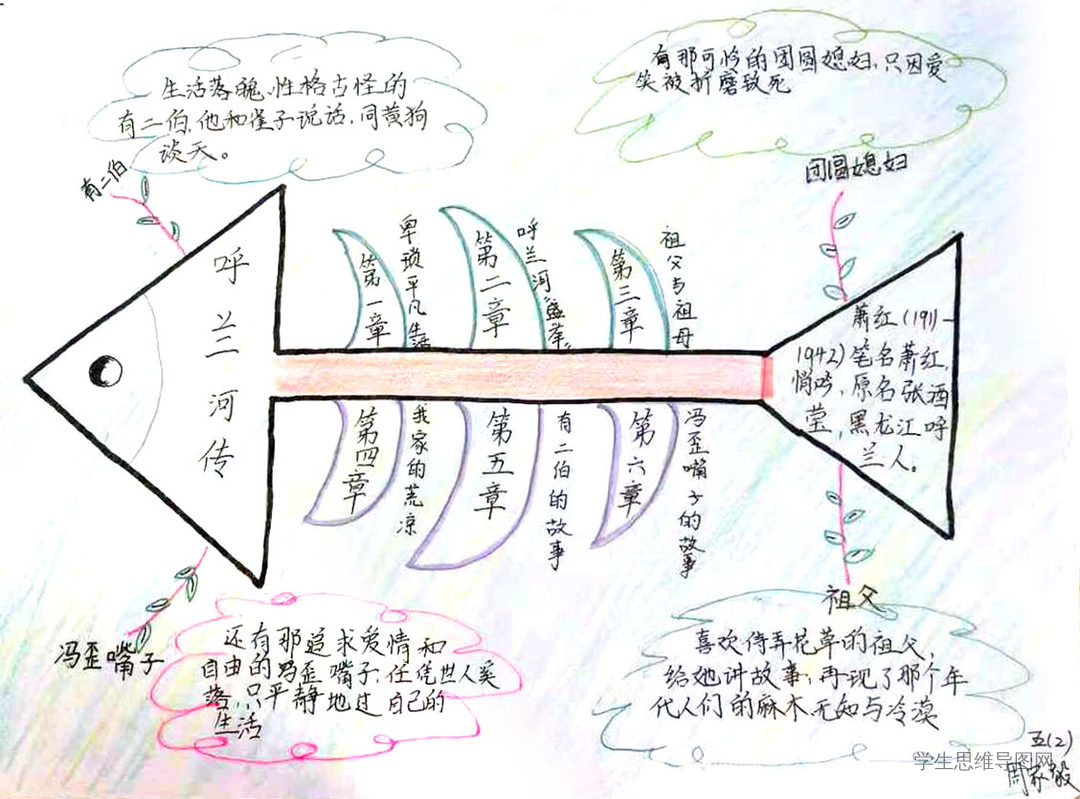 生活落魄、性格古怪的
有二伯，他和雀子说话，同黄狗
谈天。
有那可怜的团圆媳妇，只因爱
笑被折磨致死
有二伯
团圆媳妇
呼兰河传
第一章
卑琐平凡生活
第二章
呼兰河盛举
第三章
祖父与祖母
萧红(1911-
1942)笔名萧红，
悄吟，原名张迺
莹，黑龙江呼
兰人。
第四章
我家的荒凉
第五章
有二伯的故事
第六章
冯歪嘴子的故事
冯歪嘴子
祖父
还有那追求爱情和
自由的冯歪嘴子，任凭世人奚
落，只平静地过自己的
生活
喜欢侍弄花草的祖父，
给她讲故事；再现了那个年
代人们的麻木、无知与冷漠
五(2)
周家毅
学生思维导图网